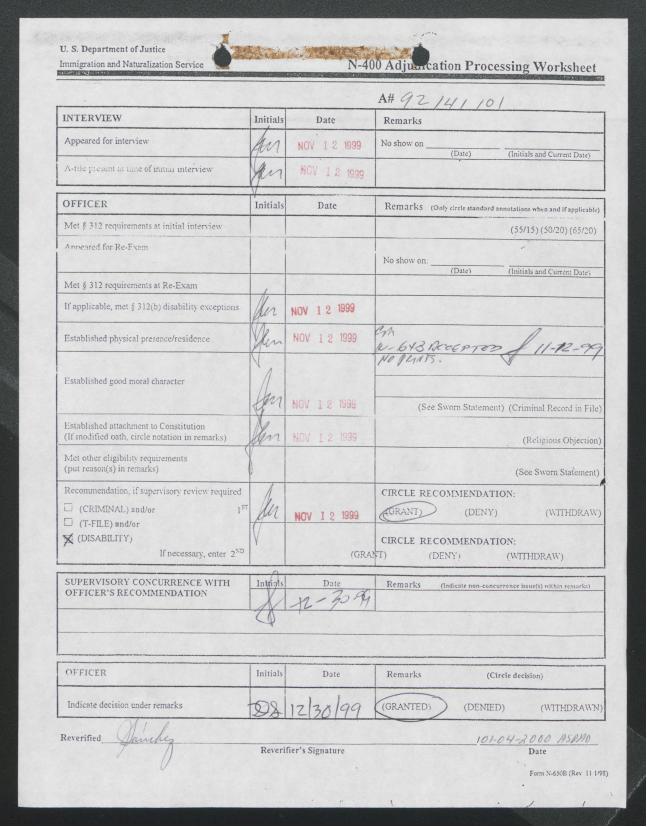 U. S. Department of Justice
Immigration and Naturalization Service
N-400 Adjudication Processing Worksheet
A# 92 141 101
INTERVIEW Initials Date Remarks
Appeared for interview NOV 12 1999 No show on
(Date) (Initials and Current Date)
A-file present at time of initial interview NOV 12 1999
OFFICER Initials Date Remarks (Only circle standard annotations when and if applicable)
Met § 312 requirements at initial interview (55/15) (50/20) (65/20)
Appeared for Re-Exam
No show on:
(Date) (Initials and Current Date)
Met § 312 requirements at Re-Exam
If applicable, met § 312(b) disability exceptions NOV 12 1999
Established physical presence/residence NOV 12 1999
N-648 ACCEPTED 11-12-99
NO PRINTS.
Established good moral character NOV 12 1999
(See Sworn Statement) (Criminal Record in File)
Established attachment to Constitution NOV 12 1999
(If modified oath, circle notation in remarks) (Religious Objection)
Met other eligibility requirements
(put reason(s) in remarks) (See Sworn Statement)
Recommendation, if supervisory review required CIRCLE RECOMMENDATION:
☐ (CRIMINAL) and/or 1ST NOV 12 1999 (GRANT) (DENY) (WITHDRAW)
☐ (T-FILE) and/or
☒ (DISABILITY) CIRCLE RECOMMENDATION:
If necessary, enter 2ND (GRANT) (DENY) (WITHDRAW)
SUPERVISORY CONCURRENCE WITH Initials Date Remarks (Indicate non-concurrence issue(s) within remarks)
OFFICER'S RECOMMENDATION 12-30-99
OFFICER Initials Date Remarks (Circle decision)
Indicate decision under remarks 12/30/99 (GRANTED) (DENIED) (WITHDRAWN)
Reverified Sánchez
Reverifier's Signature Date
Form N-650B (Rev 11 1/98)